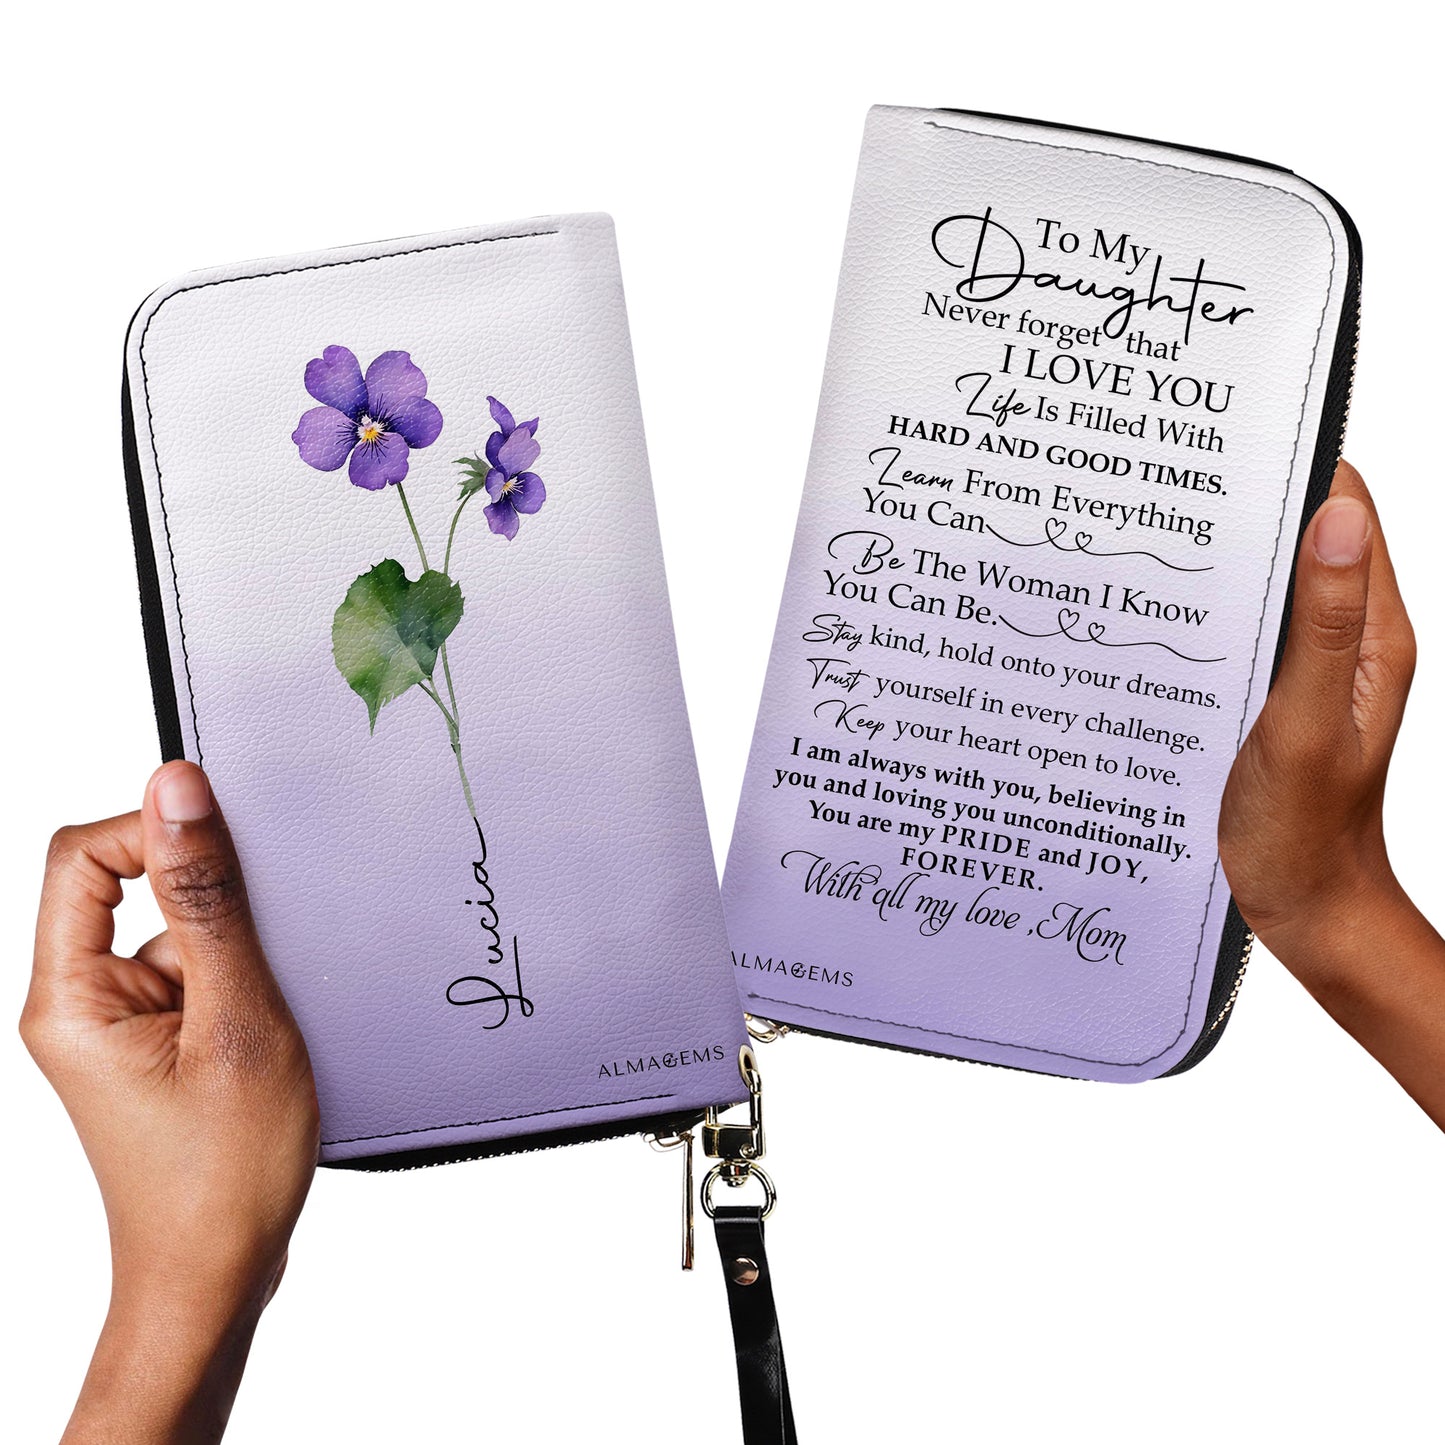 Lucia
ALMAGEMS
To My
Daughter
Never forget that
I LOVE YOU
Life Is Filled With
HARD AND GOOD TIMES.
Learn From Everything
You Can
Be The Woman I Know
You Can Be.
Stay kind, hold onto your dreams.
Trust yourself in every challenge.
Keep your heart open to love.
I am always with you, believing in
you and loving you unconditionally.
You are my PRIDE and JOY,
FOREVER.
With all my love ,Mom
ALMAGEMS